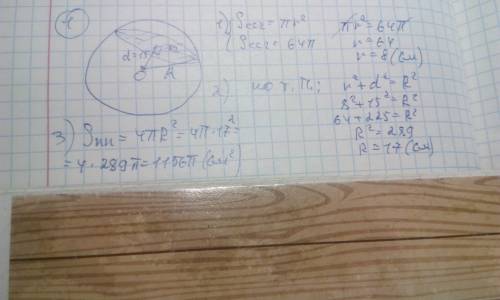 4
1) { Sсеч = πr²
{ Sсеч = 64π
πr² = 64π
r = 64
r = 8 (см)
d=15
R
O
2) по т. П.;
r² + d² = R²
8² + 15² = R²
64 + 225 = R²
R² = 289
R = 17 (см)
3) Sпп = 4πR² = 4π·17² =
= 4·289π = 1156π (см²)